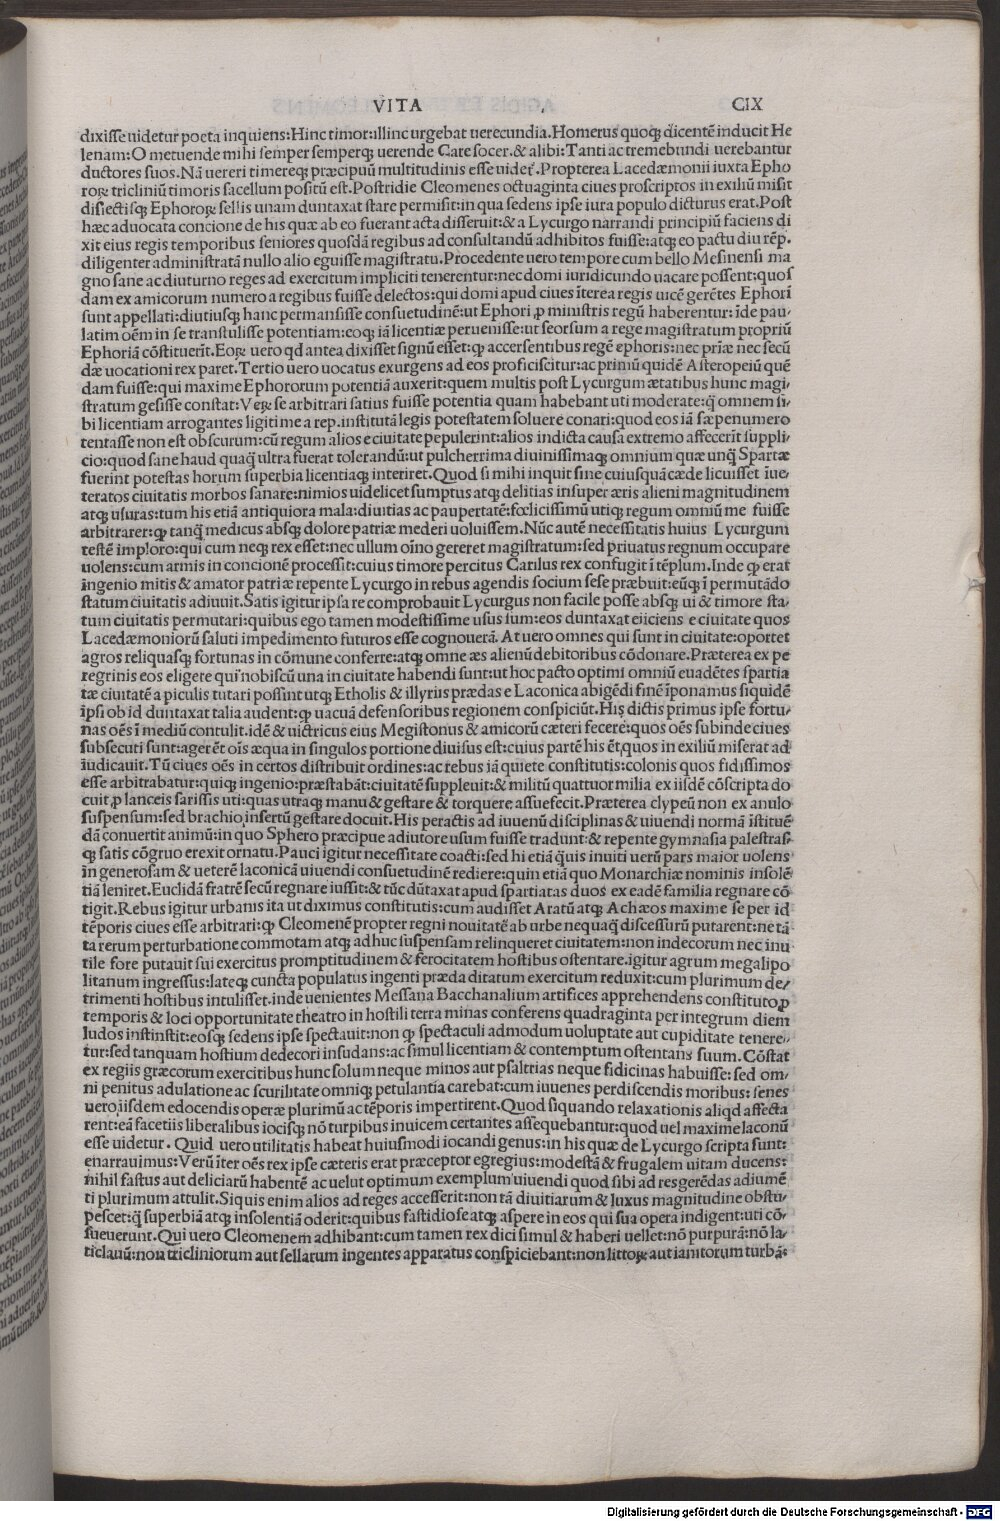 VITA CIX
dixisse uidetur poeta inquiens:Hinc timor:illinc urgebat uerecundia.Homerus quoqꝫ dicentē inducit He
lenam:O metuende mihi semper semperqꝫ uerende Care socer.& alibi:Tanti ac tremebundi uerebantur
ductores suos.Nā uereri timereqꝫ præcipuū multitudinis esse uideť.Propterea Lacedæmonii iuxta Epho
roꝝ tricliniū timoris sacellum positū est.Postridie Cleomenes octuaginta ciues proscriptos in exiliū misit
disiectisqꝫ Ephoroꝝ sellis unam duntaxat stare permisit:in qua sedens ipse iura populo dicturus erat.Post
hæc aduocata concione de his quæ ab eo fuerant acta disseruit:& a Lycurgo narrandi principiū faciens di
xit eius regis temporibus seniores quosdā regibus ad consultandū adhibitos fuisse:atqꝫ eo pactu diu rēp.
diligenter administratā nullo alio eguisse magistratu.Procedente uero tempore cum bello Mesinensi ma
gno sane ac diuturno reges ad exercitum impliciti tenerentur:nec domi iuridicundo uacare possent:quos
dam ex amicorum numero a regibus fuisse delectos:qui domi apud ciues īterea regis uicē gerētes Ephori
sunt appellati:diutiusqꝫ hanc permansisse consuetudinē:ut Ephori ꝓ ministris regū haberentur:īde pau-
latim oēm in se transtulisse potentiam:eoqꝫ iā licentiæ peruenisse:ut seorsum a rege magistratum propriū
Ephoriā cōstituerīt.Eoꝝ uero qd antea dixisset signū esset:ꝙ accersentibus regē ephoris:nec prīæ nec secū
dæ uocationi rex paret.Tertio uero uocatus exurgens ad eos proficiscitur:ac primū quidē Asteropeiū quē
dam fuisse:qui maxime Ephororum potentiā auxerit:quem multis post Lycurgum ætatibus hunc magi-
stratum gesisse constat:Veꝝ se arbitrari satius fuisse potentia quam habebant uti moderate:q̄ omnem si-
bi licentiam arrogantes ligitime a rep.institutā legis potestatem soluere conari:quod eos iā sæpenumero
tentasse non est obscurum:cū regum alios e ciuitate pepulerint:alios indicta causa extremo affecerit suppli-
cio:quod sane haud quaq̄ ultra fuerat tolerandū:ut pulcherrima diuinissimaqꝫ omnium quæ unq̄ Spartæ
fuerint potestas horum superbia licentiaqꝫ interiret.Quod si mihi inquit sine cuiusquā cæde licuisset īue-
teratos ciuitatis morbos sanare:nimios uidelicet sumptus atqꝫ delitias insuper æris alieni magnitudinem
atqꝫ usuras:tum his etiā antiquiora mala:diuitias ac paupertatē:fœlicissimū utiqꝫ regum omniū me fuisse
arbitrarer:ꝙ tanq̄ medicus absqꝫ dolore patriæ mederi uoluissem.Nūc autē necessitatis huius Lycurgum
testē īmploro:qui cum neqꝫ rex esset:nec ullum oīno gereret magistratum:sed priuatus regnum occupare
uolens:cum armis in concionē processit:cuius timore percitus Carilus rex confugit ī tēplum.Inde ꝙ erat
ingenio mitis & amator patriæ repente Lycurgo in rebus agendis socium sese præbuit:eūqꝫ ī permutādo
statum ciuitatis adiuuit.Satis igitur ipsa re comprobauit Lycurgus non facile posse absqꝫ ui & timore sta-
tum ciuitatis permutari:quibus ego tamen modestissime usus sum:eos duntaxat eiiciens e ciuitate quos
Lacedæmoniorū saluti impedimento futuros esse cognouerā.At uero omnes qui sunt in ciuitate:oportet
agros reliquasqꝫ fortunas in cōmune conferre:atqꝫ omne æs alienū debitoribus cōdonare.Præterea ex pe
regrinis eos eligere qui nobiscū una in ciuitate habendi sunt:ut hoc pacto optimi omniū euadētes spartia
tæ ciuitatē a piculis tutari possint utqꝫ Etholis & illyriis prædas e Laconica abigēdi finē īponamus siquidē
īpsi ob id duntaxat talia audent:ꝙ uacuā defensoribus regionem conspiciūt.His dictis primus ipse fortu-
nas oēs ī mediū contulit.idē & uictricus eius Megistonus & amicorū cæteri fecere:quos oēs subinde ciues
subsecuti sunt:ager ēt oīs æqua in singulos portione diuisus est:cuius partē his ēt,quos in exiliū miserat ad
iudicauit.Tū ciues oēs in certos distribuit ordines:ac rebus iā quiete constitutis:colonis quos fidissimos
esse arbitrabatur:quiqꝫ ingenio:præstabāt:ciuitatē suppleuit:& militū quattuor milia ex iisdē cōscripta do
cuit ꝓ lanceis sarissis uti:quas utraqꝫ manu & gestare & torquere assuefecit.Præterea clypeū non ex anulo
suspensum:sed brachio insertū gestare docuit.His peractis ad iuuenū disciplinas & uiuendi normā īstituē
dā conuertit animū:in quo Sphero præcipue adiutore usum fuisse tradunt:& repente gymnasia palestras-
qꝫ satis cōgruo erexit ornatu.Pauci igitur necessitate coacti:sed hi etiā q̄uis inuiti uerū pars maior uolens
in generosam & ueterē laconicā uiuendi consuetudinē rediere:quin etiā quo Monarchiæ nominis insolē
tiā leniret.Euclidā fratrē secū regnare iussit:& tūc dūtaxat apud spartiatas duos ex eadē familia regnare cō
tigit.Rebus igitur urbanis ita ut diximus constitutis:cum audisset Aratū atqꝫ Achæos maxime se per id
tēporis ciues esse arbitrari:ꝙ Cleomenē propter regni nouitatē ab urbe nequaq̄ discessurū putarent:ne tā
ta rerum perturbatione commotam atqꝫ adhuc suspensam relinqueret ciuitatem:non indecorum nec inu
tile fore putauit sui exercitus promptitudinem & ferocitatem hostibus ostentare.igitur agrum megalipo
litanum ingressus:lateqꝫ cuncta populatus ingenti præda ditatum exercitum reduxit:cum plurimum de-
trimenti hostibus intulisset.inde uenientes Messana Bacchanalium artifices apprehendens constituto ꝓ
temporis & loci opportunitate theatro in hostili terra minas conferens quadraginta per integrum diem
ludos instinstit:eosqꝫ sedens ipse spectauit:non ꝙ spectaculi admodum uoluptate aut cupiditate tenere-
tur:sed tanquam hostium dedecori insudans:ac simul licentiam & contemptum ostentans suum.Cōstat
ex regiis græcorum exercitibus hunc solum neque minos aut psaltrias neque fidicinas habuisse:sed om-
ni penitus adulatione ac scurilitate omniqꝫ petulantia carebat:cum iuuenes perdiscendis moribus:senes
uero iisdem edocendis operæ plurimū ac tēporis impertirent.Quod siquando relaxationis aliqd affecta
rent:eā facetiis liberalibus iocisqꝫ nō turpibus inuicem certantes assequebantur:quod uel maxime laconū
esse uidetur. Quid uero utilitatis habeat huiusmodi iocandi genus:in his quæ de Lycurgo scripta sunt:
enarrauimus:Verū īter oēs rex ipse cæteris erat præceptor egregius:modestā & frugalem uitam ducens:
nihil fastus aut deliciatū habentē ac uelut optimum exemplum uiuendi quod sibi ad res gerēdas adiumē
ti plurimum attulit.Siquis enim alios ad reges accesserit:non tā diuitiarum & luxus magnitudine obstu-
pescet:q̄ superbiā atqꝫ insolentiā oderit:quibus fastidiose atqꝫ aspere in eos qui sua opera indigent:uti cō-
sueuerunt.Qui uero Cleomenem adhibant:cum tamen rex dici simul & haberi uellet:nō purpurā:nō la-
ticlauū:non tricliniorum aut sellarum ingentes apparatus conspiciebant:non littoꝝ aut ianitorum turbā:
Digitalisierung gefördert durch die Deutsche Forschungsgemeinschaft - DFG